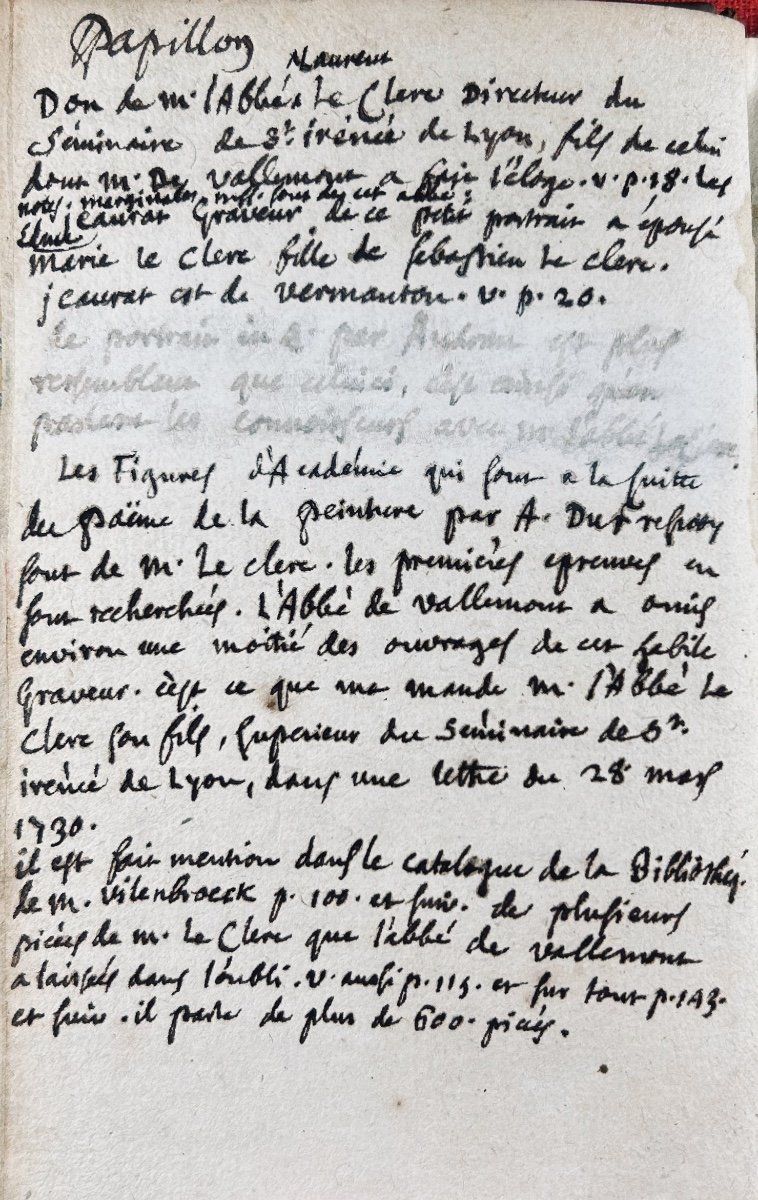 Papillon
Laurent
Don de m. l'Abbé Le Clerc Directeur du
Séminaire de St. irénée de Lyon, fils de celui
dont m. De vallemont a fait l'éloge. v. p. 18. Les
notes marginales mss. sont de cet abbé.
jeaurat Graveur de ce petit portrait a épousé
Edme
marie le Clerc fille de Sebastien le clerc.
jeaurat est de vermanton. v. p. 20.
le portrait in 4. par est plus
ressemblant que celuici, c'est ainsi qu'en
parlent les connoisseurs avec m. l'abbé
Les Figures d'Académie qui sont a la suitte
du poëme de la peinture par A. Du Fresnoy
sont de m. Le clerc. les premiéres epreuves en
sont recherchées. L'Abbé de vallemont a omis
environ une moitié des ouvrages de cet habile
Graveur. c'est ce que me mande m. l'Abbé Le
Clerc son fils, superieur du Séminaire de St.
irénée de Lyon, dans une lettre du 28 mars
1730.
il est fait mention dans le catalogue de la Biblióthéq.
de m. Uilenbroeck p. 100. et suiv. de plusieurs
piéces de m. Le Clerc que l'abbé de vallemont
a laissés dans l'oubli. v. aussi p. 115. et sur tout p. 143.
et suiv. il parle de plus de 600. piéces.